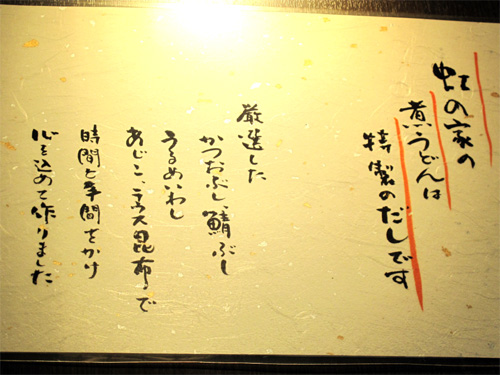 虹の家の
煮うどんは
特製のだしです
厳選した
かつおぶし、鯖ぶし
うるめいわし
あじこ、大昆布で
時間と手間をかけ
心を込めて作りました